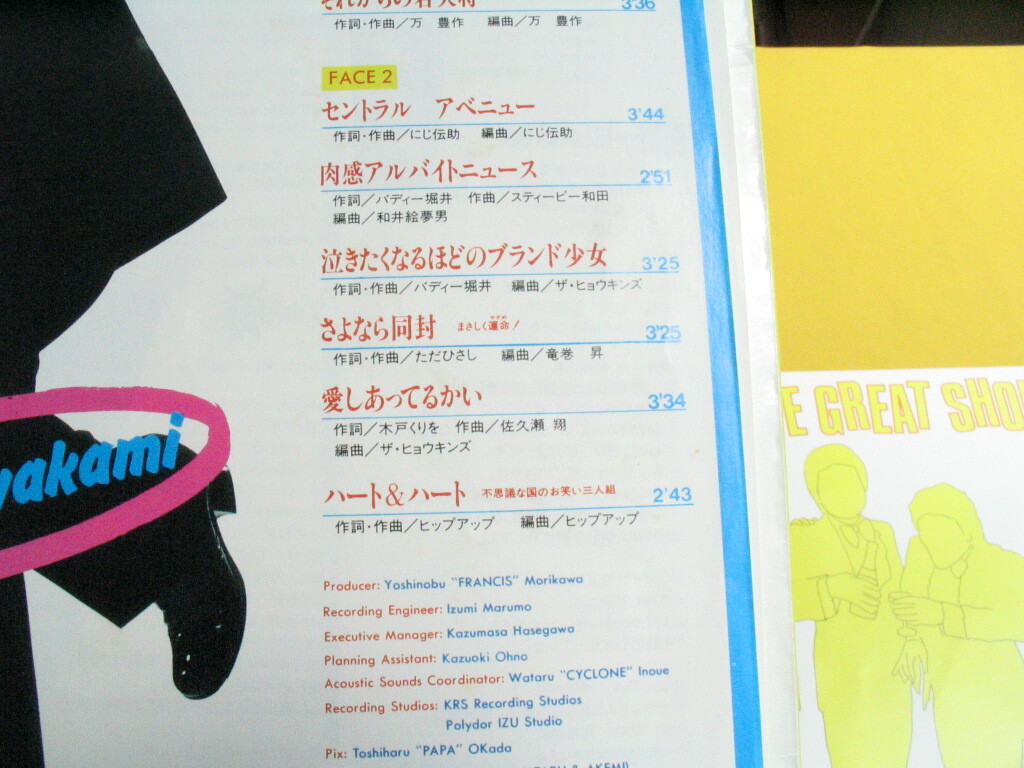 それからの若大将 3'36
作詞・作曲／万 豊作 編曲／万 豊作
FACE 2
セントラル アベニュー 3'44
作詞・作曲／にじ伝助 編曲／にじ伝助
肉感アルバイトニュース 2'51
作詞／バディー堀井 作曲／スティービー和田
編曲／和井絵夢男
泣きたくなるほどのブランド少女 3'25
作詞・作曲／バディー堀井 編曲／ザ・ヒョウキンズ
さよなら同封 まさしく運命！ 3'25
作詞・作曲／ただひさし 編曲／竜巻 昇
愛しあってるかい 3'34
作詞／木戸くりを 作曲／佐久瀬 翔
編曲／ザ・ヒョウキンズ
ハート＆ハート 不思議な国のお笑い三人組 2'43
作詞・作曲／ヒップアップ 編曲／ヒップアップ
Producer: Yoshinobu "FRANCIS" Morikawa
Recording Engineer: Izumi Marumo
Executive Manager: Kazumasa Hasegawa
Planning Assistant: Kazuoki Ohno
Acoustic Sounds Coordinator: Wataru "CYCLONE" Inoue
Recording Studios: KRS Recording Studios
Polydor IZU Studio
Pix: Toshiharu "PAPA" OKada
& AKEMI)
wakami
E GREAT SHO